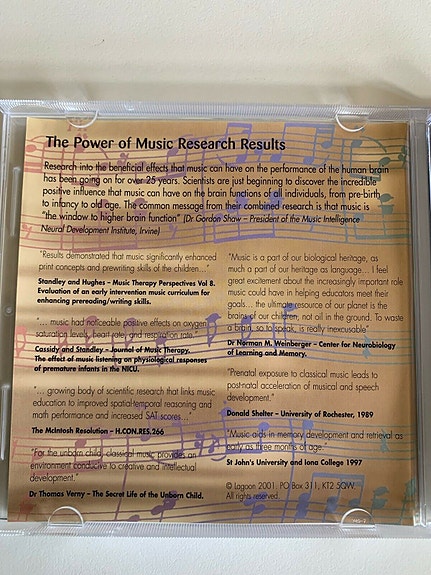 The Power of Music Research Results
Research into the beneficial effects that music can have on the performance of the human brain
has been going on for over 25 years. Scientists are just beginning to discover the incredible
positive influence that music can have on the brain functions of all individuals, from pre-birth,
to infancy to old age. The common message from their combined research is that music is
"the window to higher brain function" (Dr Gordon Shaw – President of the Music Intelligence
Neural Development Institute, Irvine)
"Results demonstrated that music significantly enhanced
print concepts and prewriting skills of the children..."
Standley and Hughes – Music Therapy Perspectives Vol 8.
Evaluation of an early intervention music curriculum for
enhancing prereading/writing skills.
"... music had noticeable positive effects on oxygen
saturation levels, heart rate, and respiration rate."
Cassidy and Standley – Journal of Music Therapy.
The effect of music listening on physiological responses
of premature infants in the NICU.
"... growing body of scientific research that links music
education to improved spatial-temporal reasoning and
math performance and increased SAT scores..."
The McIntosh Resolution – H.CON.RES.266
"For the unborn child, classical music provides an
environment conducive to creative and intellectual
development."
Dr Thomas Verny – The Secret Life of the Unborn Child.
"Music is a part of our biological heritage, as
much a part of our heritage as language... I feel
great excitement about the increasingly important role
music could have in helping educators meet their
goals... the ultimate resource of our planet is the
brains of our children, not oil in the ground. To waste
a brain, so to speak, is really inexcusable"
Dr Norman M. Weinberger – Center for Neurobiology
of Learning and Memory.
"Prenatal exposure to classical music leads to
post-natal acceleration of musical and speech
development."
Donald Shelter – University of Rochester, 1989
"Music aids in memory development and retrieval as
early as three months of age."
St John's University and Iona College 1997
© Lagoon 2001. PO Box 311, KT2 5QW.
All rights reserved.